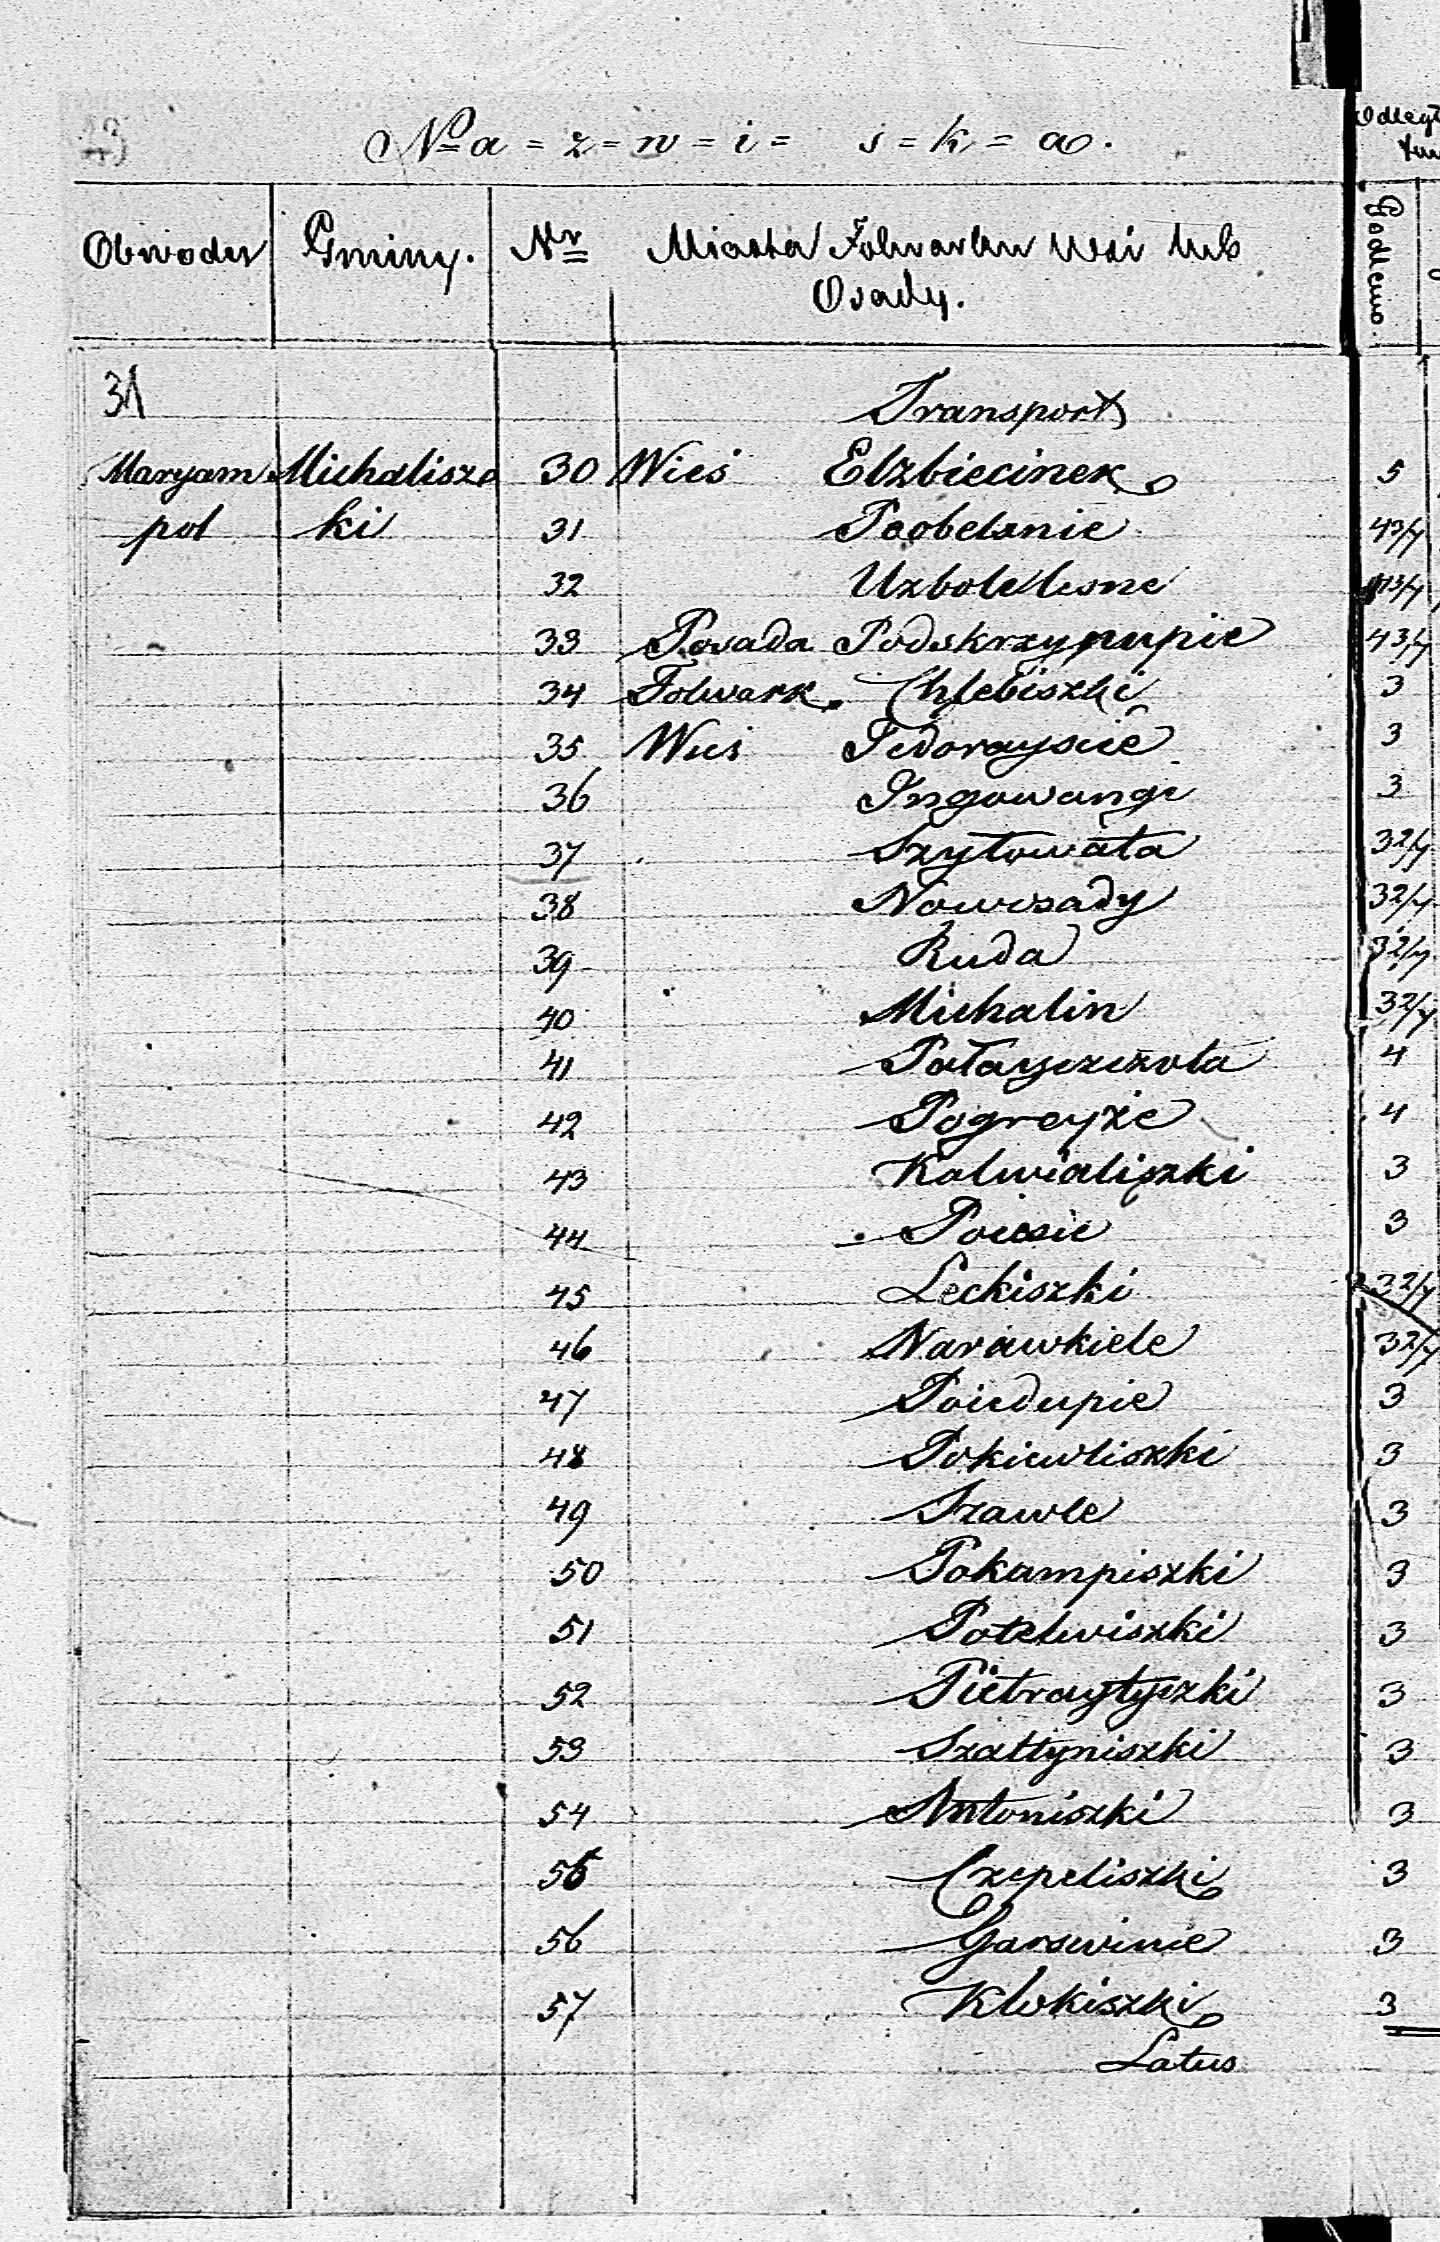 43
N a = z = w = i = s = k = a.
Obwodu Gminy. Nr Miasta Folwarku Wsi lub
Osady.
31
Transport
Maryam Michalisz 30 Wieś Elzbiecinek 5
pol ki 31 Poobelsnie 4 3/7
32 Uzbolelesne 3/7
33 Posada Podskrzypupie 4 3/7
34 Folwark Chlebiszki 3
35 Wieś Fedorayscie 3
36 Ingowangi 3
37 Szytowała 3 2/7
38 Nowosady 3 2/7
39 Ruda 3 2/7
40 Michalin 3 2/7
41 4
42 Pogreyże 4
43 Kalwialiszki 3
44 Poiesie 3
45 Leckiszki 3 2/7
46 Narawkiele 3 2/7
47 Poiedupie 3
48 Pokiewliszki 3
49 Szawle 3
50 Pokampiszki 3
51 Potelwiszki 3
52 Pietraytyszki 3
53 Szaltyniszki 3
54 Antoniszki 3
55 Czepeliszki 3
56 Garswinie 3
57 Klokiszki 3
Latus
Odległ
Godlewo.